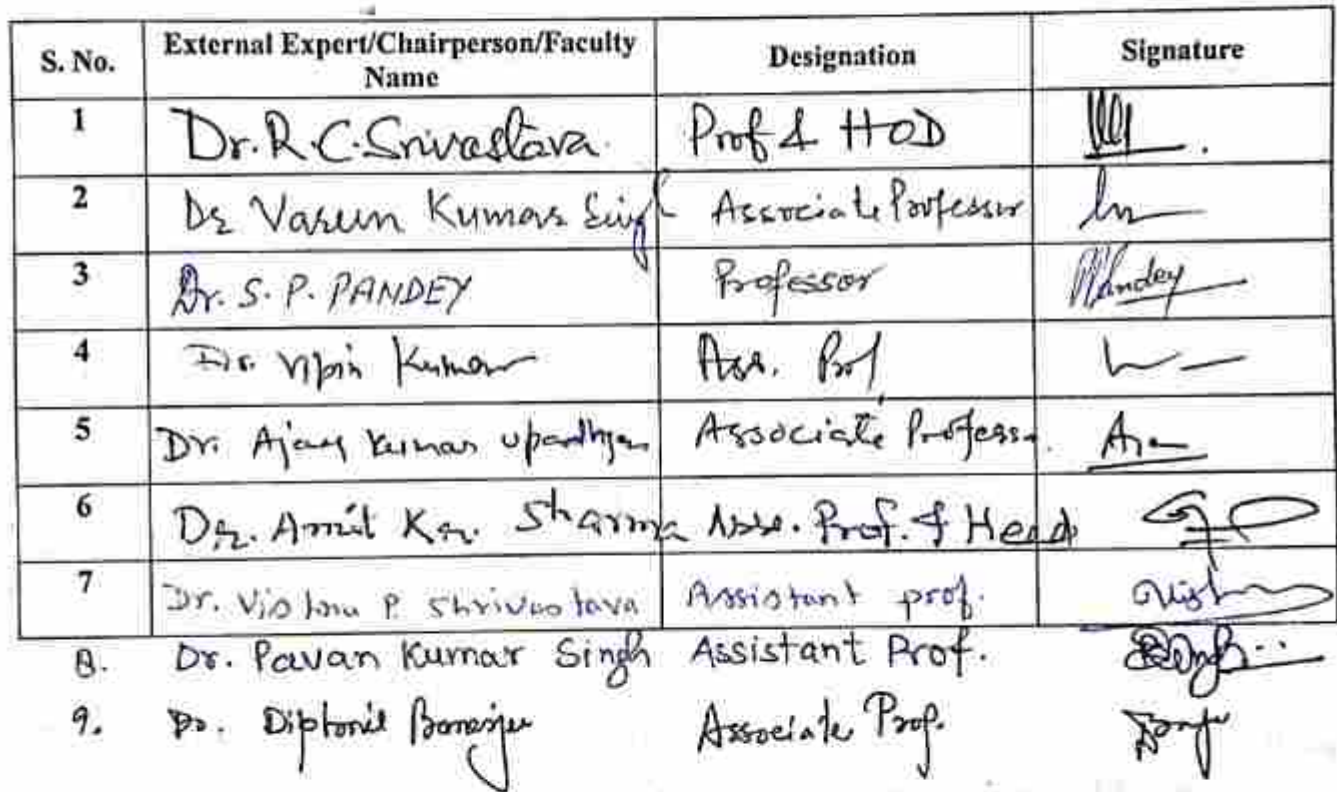 S. No. External Expert/Chairperson/Faculty Name Designation Signature
1 Dr. R. C. Srivastava Prof & HOD
2 Dr Varun Kumar Singh Associate Professor
3 Dr. S. P. PANDEY Professor Pandey
4 Dr. Vipin Kumar Ass. Prof
5 Dr. Ajay Kumar Upadhyay Associate Professor
6 Dr. Amit Kr. Sharma Asso. Prof. & Head
7 Dr. Vishnu P. Shrivastava Assistant prof.
8. Dr. Pavan Kumar Singh Assistant Prof.
9. Dr. Diptonil Banerjee Associate Prof.